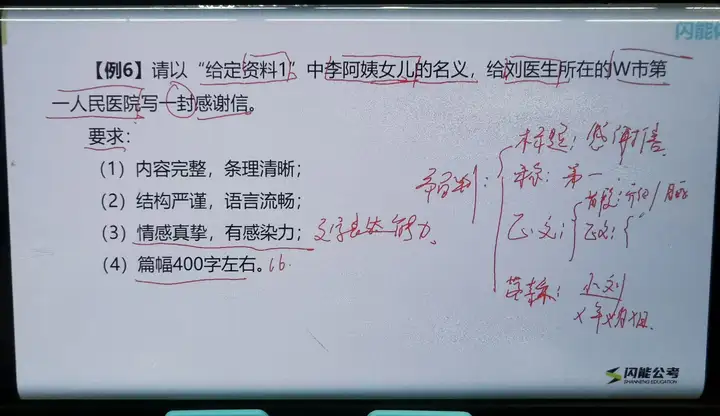 闪能
【例6】请以“给定资料1”中李阿姨女儿的名义，给刘医生所在的W市第
一人民医院写一封感谢信。
要求：
（1）内容完整，条理清晰；
（2）结构严谨，语言流畅；
（3）情感真挚，有感染力；文字表达能力
（4）篇幅400字左右。16.
标题：感谢信
称：第一
正文：
正文：
落款：小刘
x年x月x日
闪能公考
SHANNENG EDUCATION